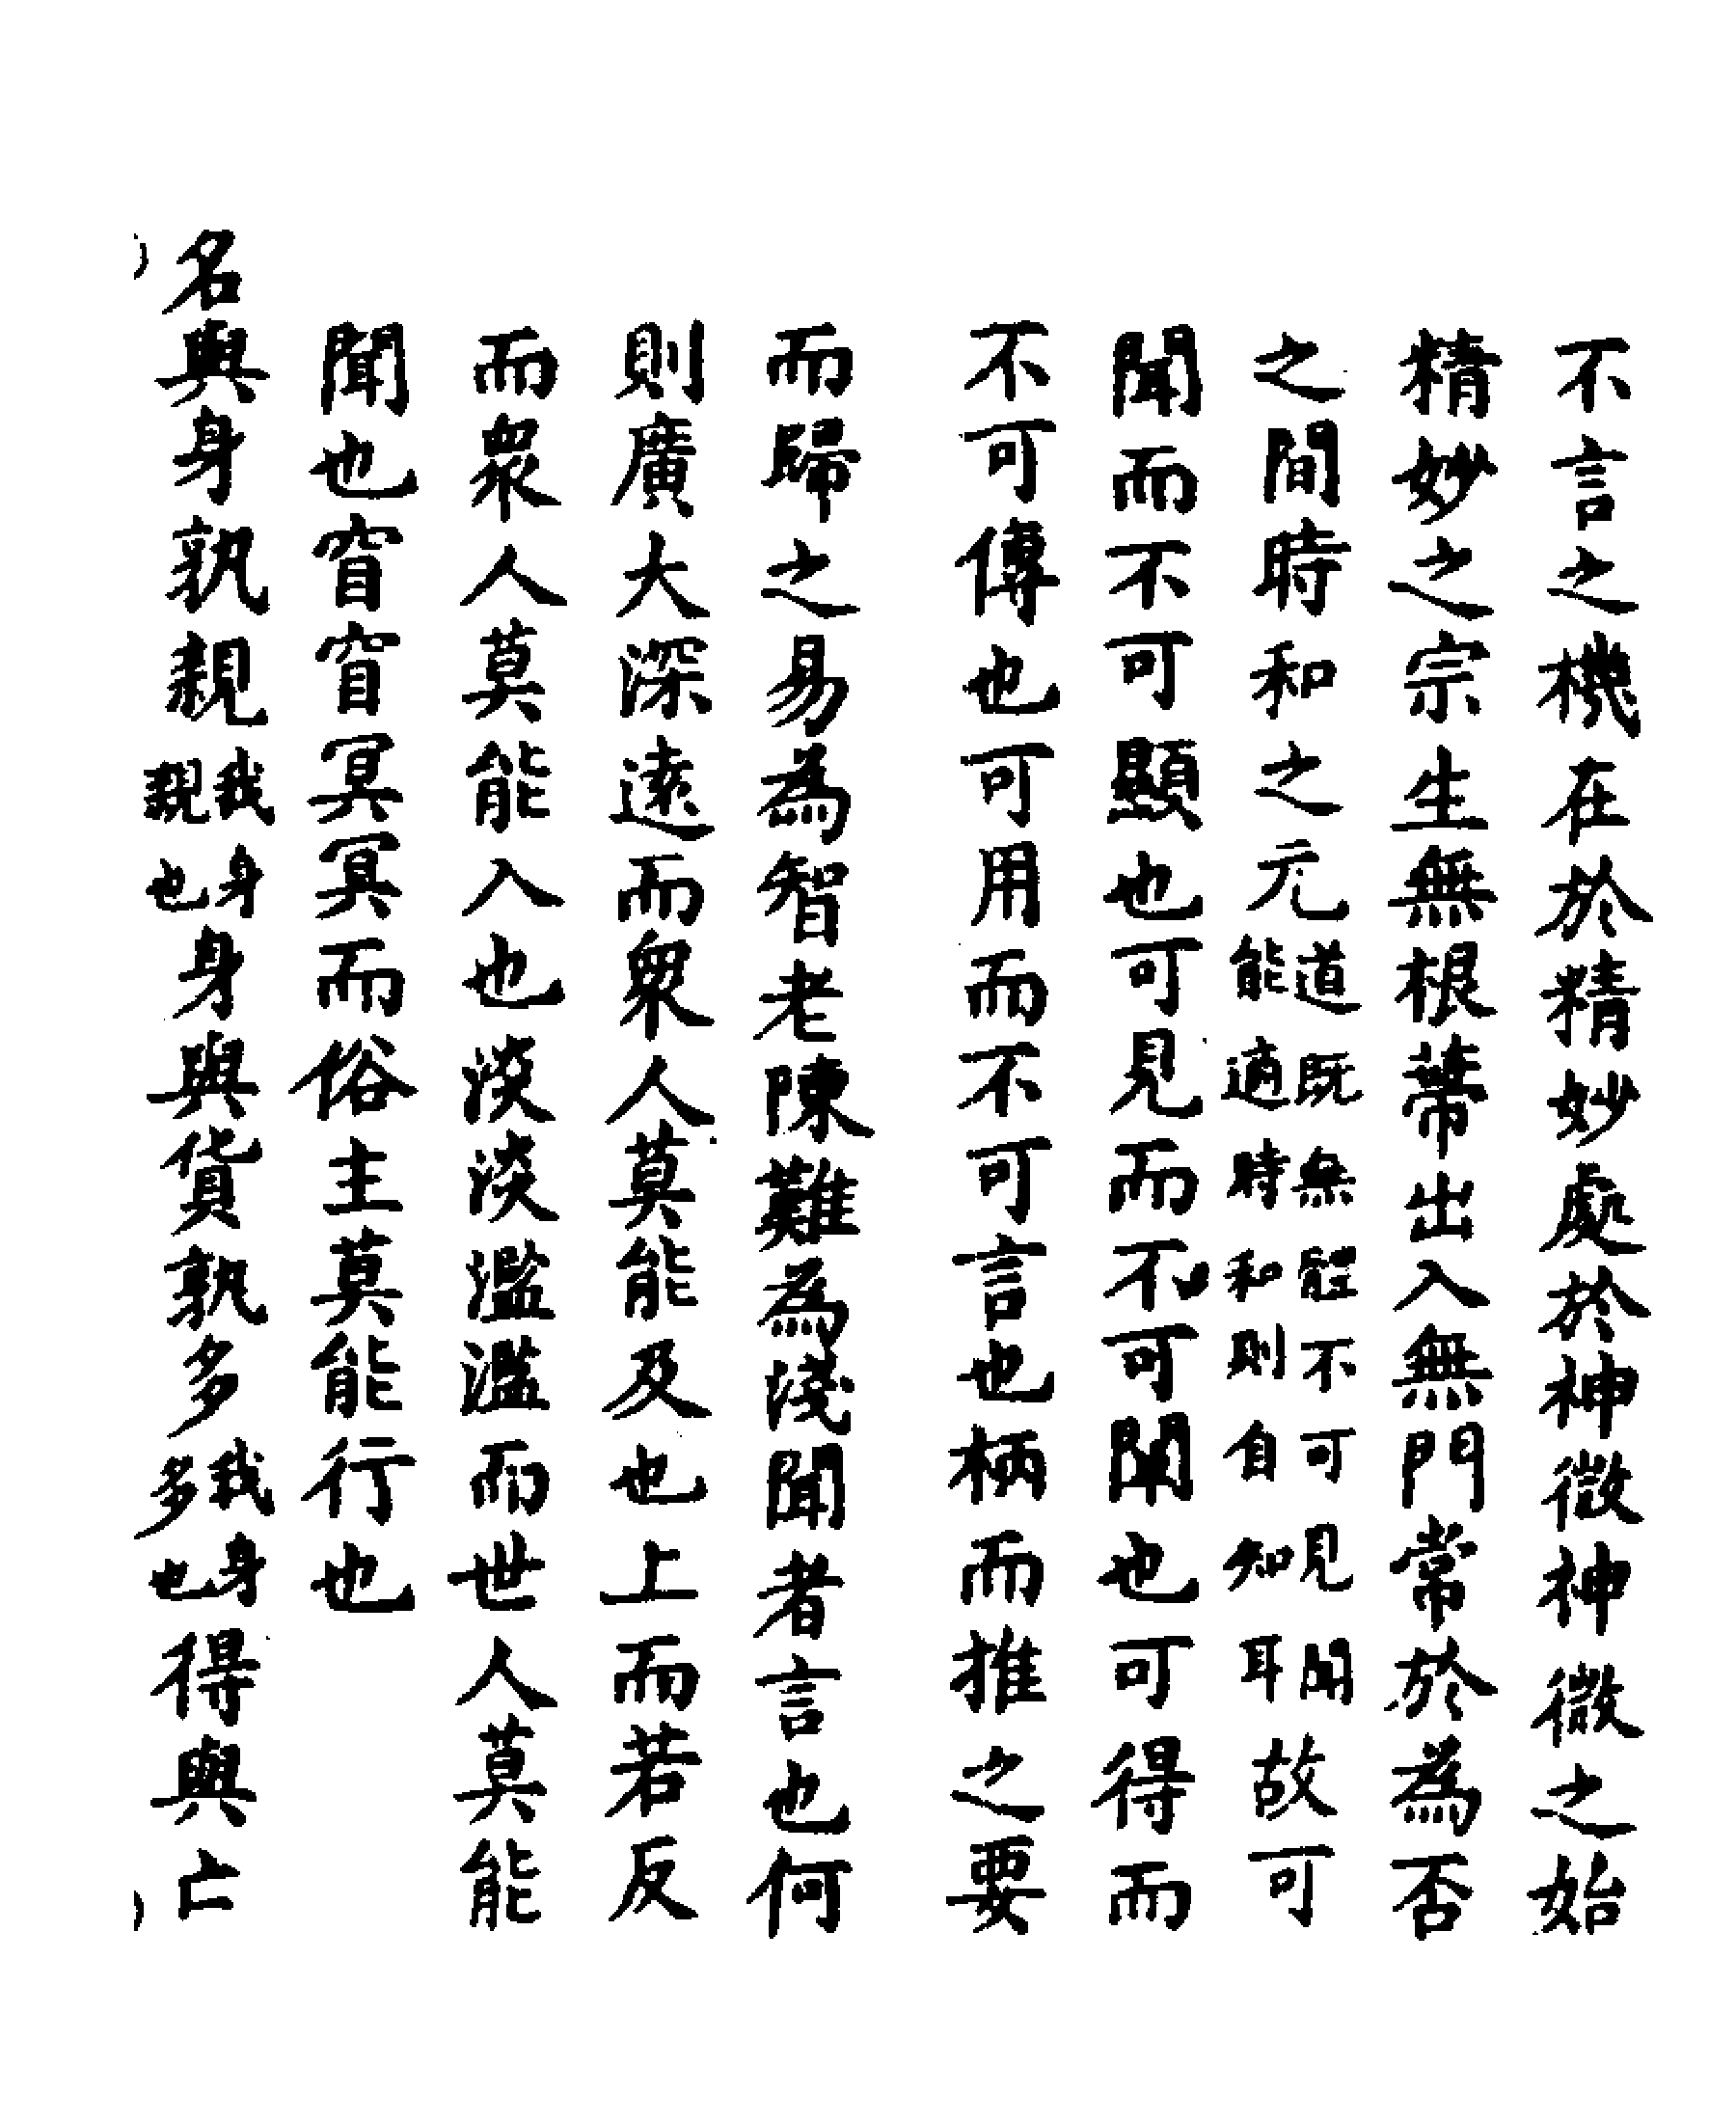 不言之機在於精妙處於神微神微之始
精妙之宗生無根蔕出入無門常於為否
之間時和之元道既無體不可見聞能適時和則自知耳故可
聞而不可顯也可見而不可聞也可得而
不可傳也可用而不可言也柄而推之要
而歸之易為智老陳難為淺聞者言也何
則廣大深遠而眾人莫能及也上而若反
而眾人莫能入也淡淡濫濫而世人莫能
聞也窅窅冥冥而俗主莫能行也
名與身孰親我身親也身與貨孰多我身多也得與亡